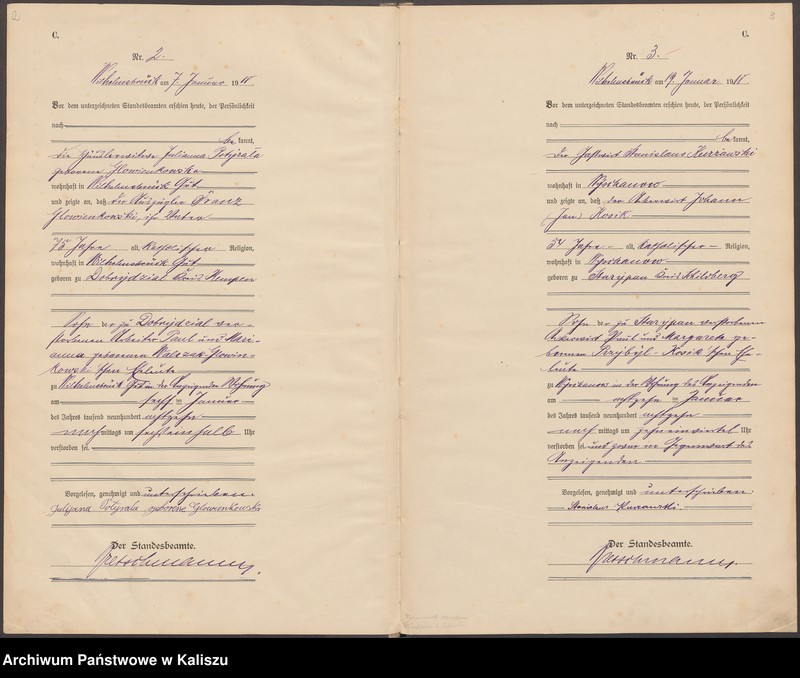 2
C.
Nr. 2.
Wilhelmsbrück am 7. Januar 1918.
Vor dem unterzeichneten Standesbeamten erschien heute, der Persönlichkeit
nach
bekannt,
die Häuslerwitwe Julianna Potyrala
geborene Glowienkowska
wohnhaft in Wilhelmsbrück Gut
und zeigte an, daß der Auszügler Franz
Glowienkowski, ihr Vater
75 Jahre alt, katholischer Religion,
wohnhaft in Wilhelmsbrück Gut
geboren zu Dobrydzial Kreis Kempen
Sohn der zu Dobrydzial ver-
storbenen Arbeiter Paul und Mari-
anna geborenen Walczak-Glowien-
kowski'schen Eheleute
zu Wilhelmsbrück Gut in der Wohnung
am Januar
des Jahres tausend neunhundert achtzehn
nachmittags um Uhr
verstorben sei.
Vorgelesen, genehmigt und unterschrieben.
Julijana Potyrala geborene Glowienkowski
Der Standesbeamte.
3
C.
Nr. 3.
Wilhelmsbrück am 19. Januar 1918.
Vor dem unterzeichneten Standesbeamten erschien heute, der Persönlichkeit
nach
bekannt,
der Gastwirt Stanislaus Kurzawski
wohnhaft in
und zeigte an, daß der Ackerwirt Johann
(Jan) Kosik
54 Jahre alt, katholischer Religion,
wohnhaft in
geboren zu Kreis Schildberg
Sohn der zu verstorbenen
Ackerwirt Paul und Margareta ge-
borenen Przybyl-Kosik'schen Ehe-
leute
zu in der Wohnung des Anzeigenden
am achtzehn Januar
des Jahres tausend neunhundert achtzehn
nachmittags um Uhr
verstorben sei und zwar in Gegenwart des
Anzeigenden
Vorgelesen, genehmigt und unterschrieben
Stanislaus Kurzawski.
Der Standesbeamte.
Archiwum Państwowe w Kaliszu